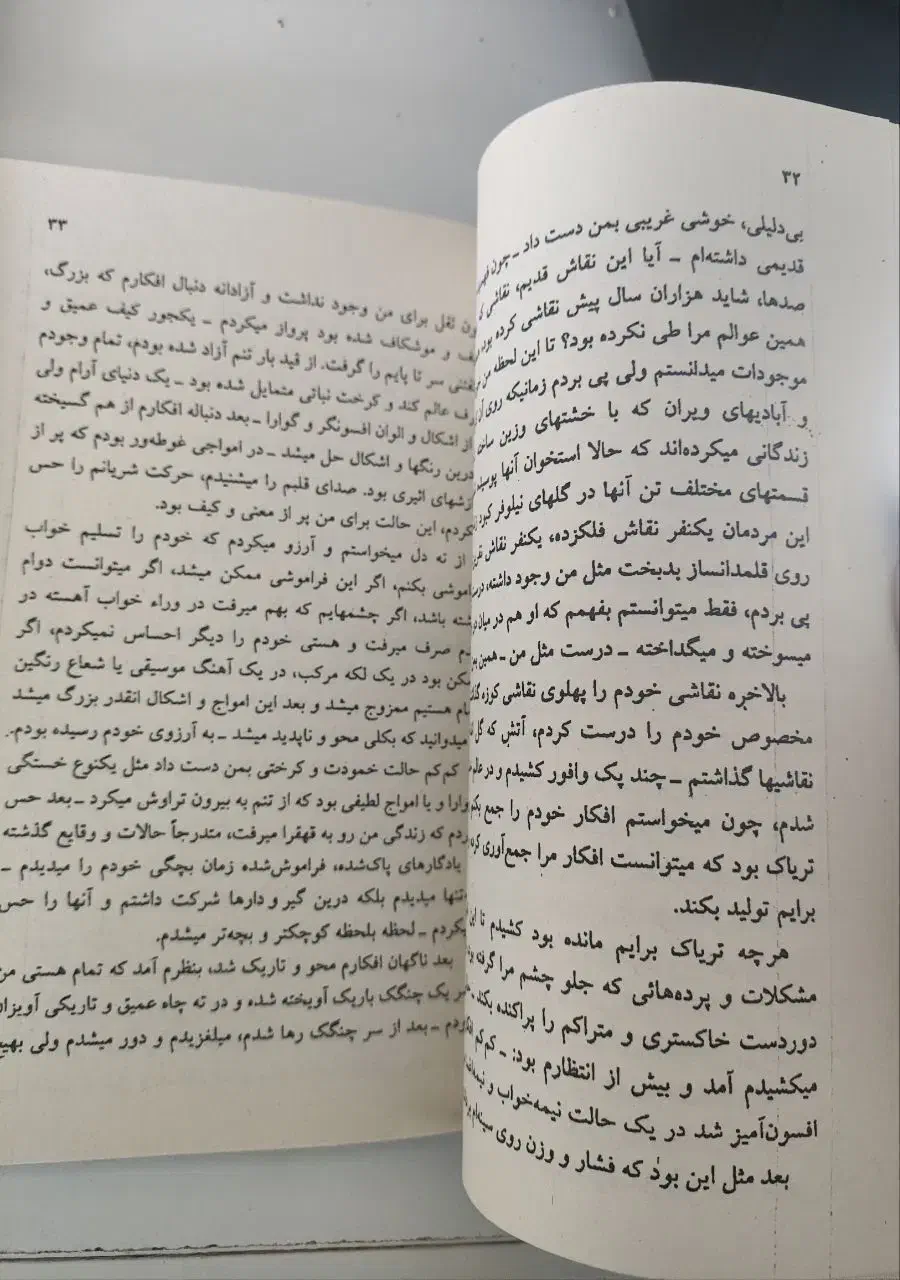 ۳۲
بی‌دلیلی، خوشی غریبی بمن دست داد ـ چون
قدیمی داشته‌ام ـ آیا این نقاش قدیم، نقاشی که
صدها، شاید هزاران سال پیش نقاشی کرده بود،
همین عوالم مرا طی نکرده بود؟ تا این لحظه من
موجودات میدانستم ولی پی بردم زمانیکه روی آن
و آبادیهای ویران که با خشتهای وزین ساخته
زندگانی میکرده‌اند که حالا استخوان آنها پوسیده
قسمتهای مختلف تن آنها در گلهای نیلوفر کبود
این مردمان یکنفر نقاش فلکزده، یکنفر نقاش
روی قلمدانساز بدبخت مثل من وجود داشته، درست
پی بردم، فقط میتوانستم بفهمم که او هم در میان
میسوخته و میگداخته ـ درست مثل من ـ همین
بالاخره نقاشی خودم را پهلوی نقاشی کوزه
مخصوص خودم را درست کردم، آتش که گل
نقاشیها گذاشتم ـ چند پک وافور کشیدم و در عالم
شدم، چون میخواستم افکار خودم را جمع
تریاک بود که میتوانست افکار مرا جمع‌آوری
برایم تولید بکند.
هرچه تریاک برایم مانده بود کشیدم تا این
مشکلات و پرده‌هائی که جلو چشم مرا گرفته
دوردست خاکستری و متراکم را پراکنده بکند ـ
میکشیدم آمد و بیش از انتظارم بود: ـ کم‌کم
افسون‌آمیز شد در یک حالت نیمه‌خواب و
بعد مثل این بود که فشار و وزن روی سینه‌ام
۳۳
ثقل برای من وجود نداشت و آزادانه دنبال افکارم که بزرگ،
و موشکاف شده بود پرواز میکردم ـ یکجور کیف عمیق و
سر تا پایم را گرفت. از قید بار تنم آزاد شده بودم، تمام وجودم
عالم کند و کرخت نباتی متمایل شده بود ـ یک دنیای آرام ولی
از اشکال و الوان افسونگر و گوارا ـ بعد دنباله افکارم از هم گسیخته
درین رنگها و اشکال حل میشد ـ در امواجی غوطه‌ور بودم که پر از
اثیری بود. صدای قلبم را میشنیدم، حرکت شریانم را حس
این حالت برای من پر از معنی و کیف بود.
از ته دل میخواستم و آرزو میکردم که خودم را تسلیم خواب
بکنم، اگر این فراموشی ممکن میشد، اگر میتوانست دوام
باشد، اگر چشمهایم که بهم میرفت در وراء خواب آهسته در
صرف میرفت و هستی خودم را دیگر احساس نمیکردم، اگر
بود در یک لکه مرکب، در یک آهنگ موسیقی یا شعاع رنگین
هستیم ممزوج میشد و بعد این امواج و اشکال انقدر بزرگ میشد
میدوانید که بکلی محو و ناپدید میشد ـ به آرزوی خودم رسیده بودم.
کم‌کم حالت خمودت و کرختی بمن دست داد مثل یکنوع خستگی
و یا امواج لطیفی بود که از تنم به بیرون تراوش میکرد ـ بعد حس
که زندگی من رو به قهقرا میرفت، متدرجاً حالات و وقایع گذشته
یادگارهای پاک‌شده، فراموش‌شده زمان بچگی خودم را میدیدم ـ
نه‌تنها میدیدم بلکه درین گیر و دارها شرکت داشتم و آنها را حس
ـ لحظه بلحظه کوچکتر و بچه‌تر میشدم.
بعد ناگهان افکارم محو و تاریک شد، بنظرم آمد که تمام هستی من
سر یک چنگک باریک آویخته شده و در ته چاه عمیق و تاریکی آویزان
ـ بعد از سر چنگک رها شدم، میلغزیدم و دور میشدم ولی بهیچ